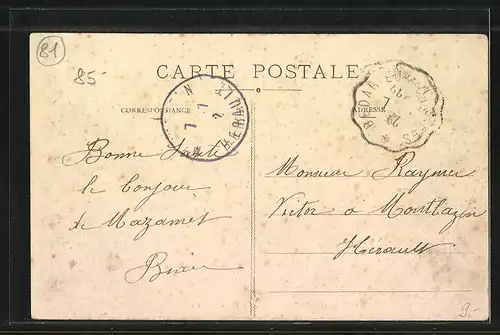 81
85-
CARTE POSTALE
CORRESPONDANCE
ADRESSE
Bonne Santé
le bonjour
de Mazamet
Monsieur Raymer
Victor à Montbazin
Hérault
9.-